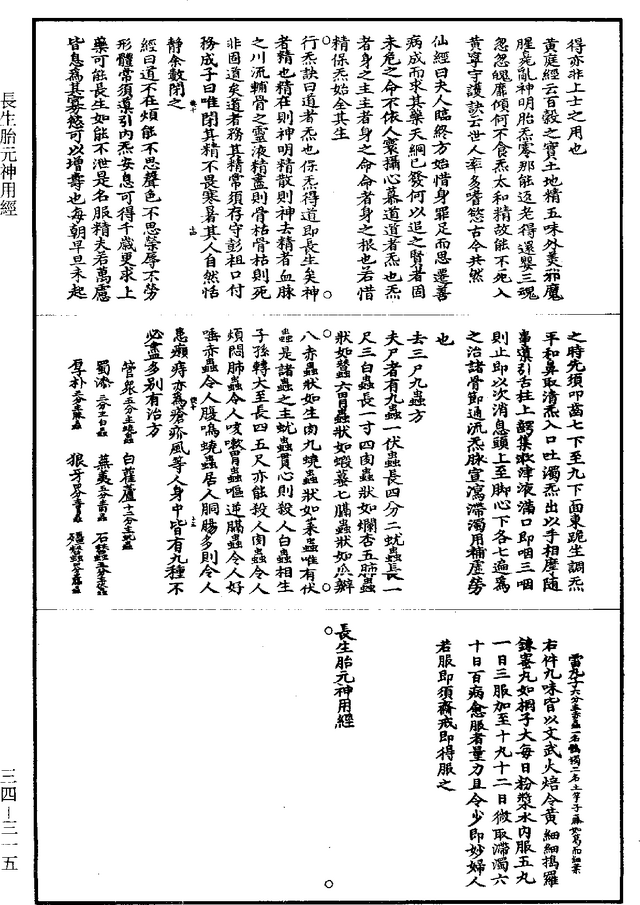 得亦非上士之用也
黃庭經云百穀之寶土地精五味外羙邪魔
腥臭亂神明胎炁零那能返老得還嬰三魂
忽忽魄靡傾何不食炁太和精故能不死入
黃寧守護訣云世人率多嗜慾古今共然
仙經曰夫人臨終方始惜身罪足而思遷善
病成而求其藥天網已發何以追之賢者固
未危之命不依人禀攝心慕道道者炁也炁
者身之主主者身之命命者身之根也若惜
精保炁始全其生
行炁訣曰道者炁也保炁得道即長生矣神
者精也精在則神明精散則神去精者血脉
之川流輔骨之靈液精盡則骨枯骨枯則死
非固道矣道者務其精常須存守彭祖口付
務成子曰唯閉其精不畏寒暑其人自然恬
靜余數閉之
經曰道不在煩能不思聲色不思榮辱不勞
形體常須導引內炁安息可得千歲更求上
藥可能長生如能不泄是名服精夫若萬慮
皆息為其寡慾可以增壽也每朝早旦未起
之時先須叩齒七下至九下面東跪坐調炁
平和鼻取清炁入口吐濁炁出以手相摩隨
事導引舌柱上齶集取津液滿口即咽三咽
則止即以次消息頭上至脚心下各七遍為
之治諸骨節通流炁脉宣瀉滯濁用補虛勞
也
去三尸九蟲方
夫尸者有九蟲一伏蟲長四分二蚘蟲長一
尺三白蟲長一寸四肉蟲狀如爛杏五肺蟲
狀如蠶蟲六胃蟲狀如蝦蟇七膈蟲狀如瓜瓣
八赤蟲狀如生肉九蟯蟲狀如菜蟲唯有伏
蟲是諸蟲之主蚘蟲貫心則殺人白蟲相生
子孫轉大至長四五尺亦能殺人肉蟲令人
煩悶肺蟲令人咳嗽胃蟲嘔逆膈蟲令人好
唾赤蟲令人腹鳴蟯蟲居人胴腸多則令人
患癩痔亦為瘡疥風等人身中皆有九種不
必盡多別有治方
管泉五分主蟯蟲 白雚蘆十二分主蚘蟲
蜀漆三分主白蟲 蕪荑五分主肉蟲
厚朴三分主肺蟲 狼牙四分主胃蟲
雷丸子六分主赤蟲
右件九味皆以文武火焙令黃細細搗羅
鍊蜜丸如桐子大每日粉漿水內服五丸
一日三服加至十九十二日微取滯濁六
十日百病愈服者量力且令少即妙婦人
若服即須齋戒即得服之
長生胎元神用經
長生胎元神用經
三四-三一五